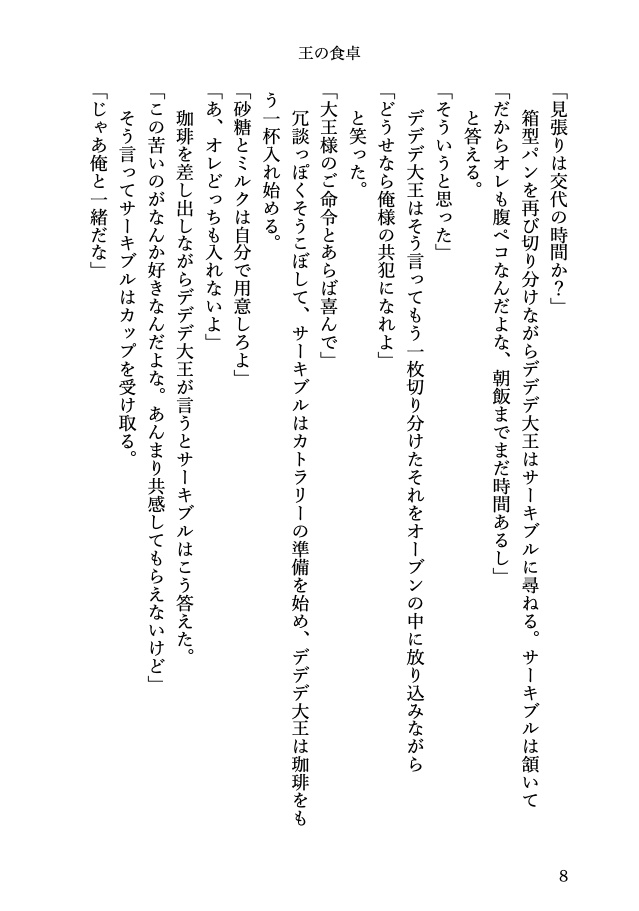 王の食卓
「見張りは交代の時間か？」
箱型パンを再び切り分けながらデデデ大王はサーキブルに尋ねる。サーキブルは頷いて
「だからオレも腹ペコなんだよな、朝飯までまだ時間あるし」
と答える。
「そういうと思った」
デデデ大王はそう言ってもう一枚切り分けたそれをオーブンの中に放り込みながら
「どうせなら俺様の共犯になれよ」
と笑った。
「大王様のご命令とあらば喜んで」
冗談っぽくそうこぼして、サーキブルはカトラリーの準備を始め、デデデ大王は珈琲をも
う一杯入れ始める。
「砂糖とミルクは自分で用意しろよ」
「あ、オレどっちも入れないよ」
珈琲を差し出しながらデデデ大王が言うとサーキブルはこう答えた。
「この苦いのがなんか好きなんだよな。あんまり共感してもらえないけど」
そう言ってサーキブルはカップを受け取る。
「じゃあ俺と一緒だな」
8